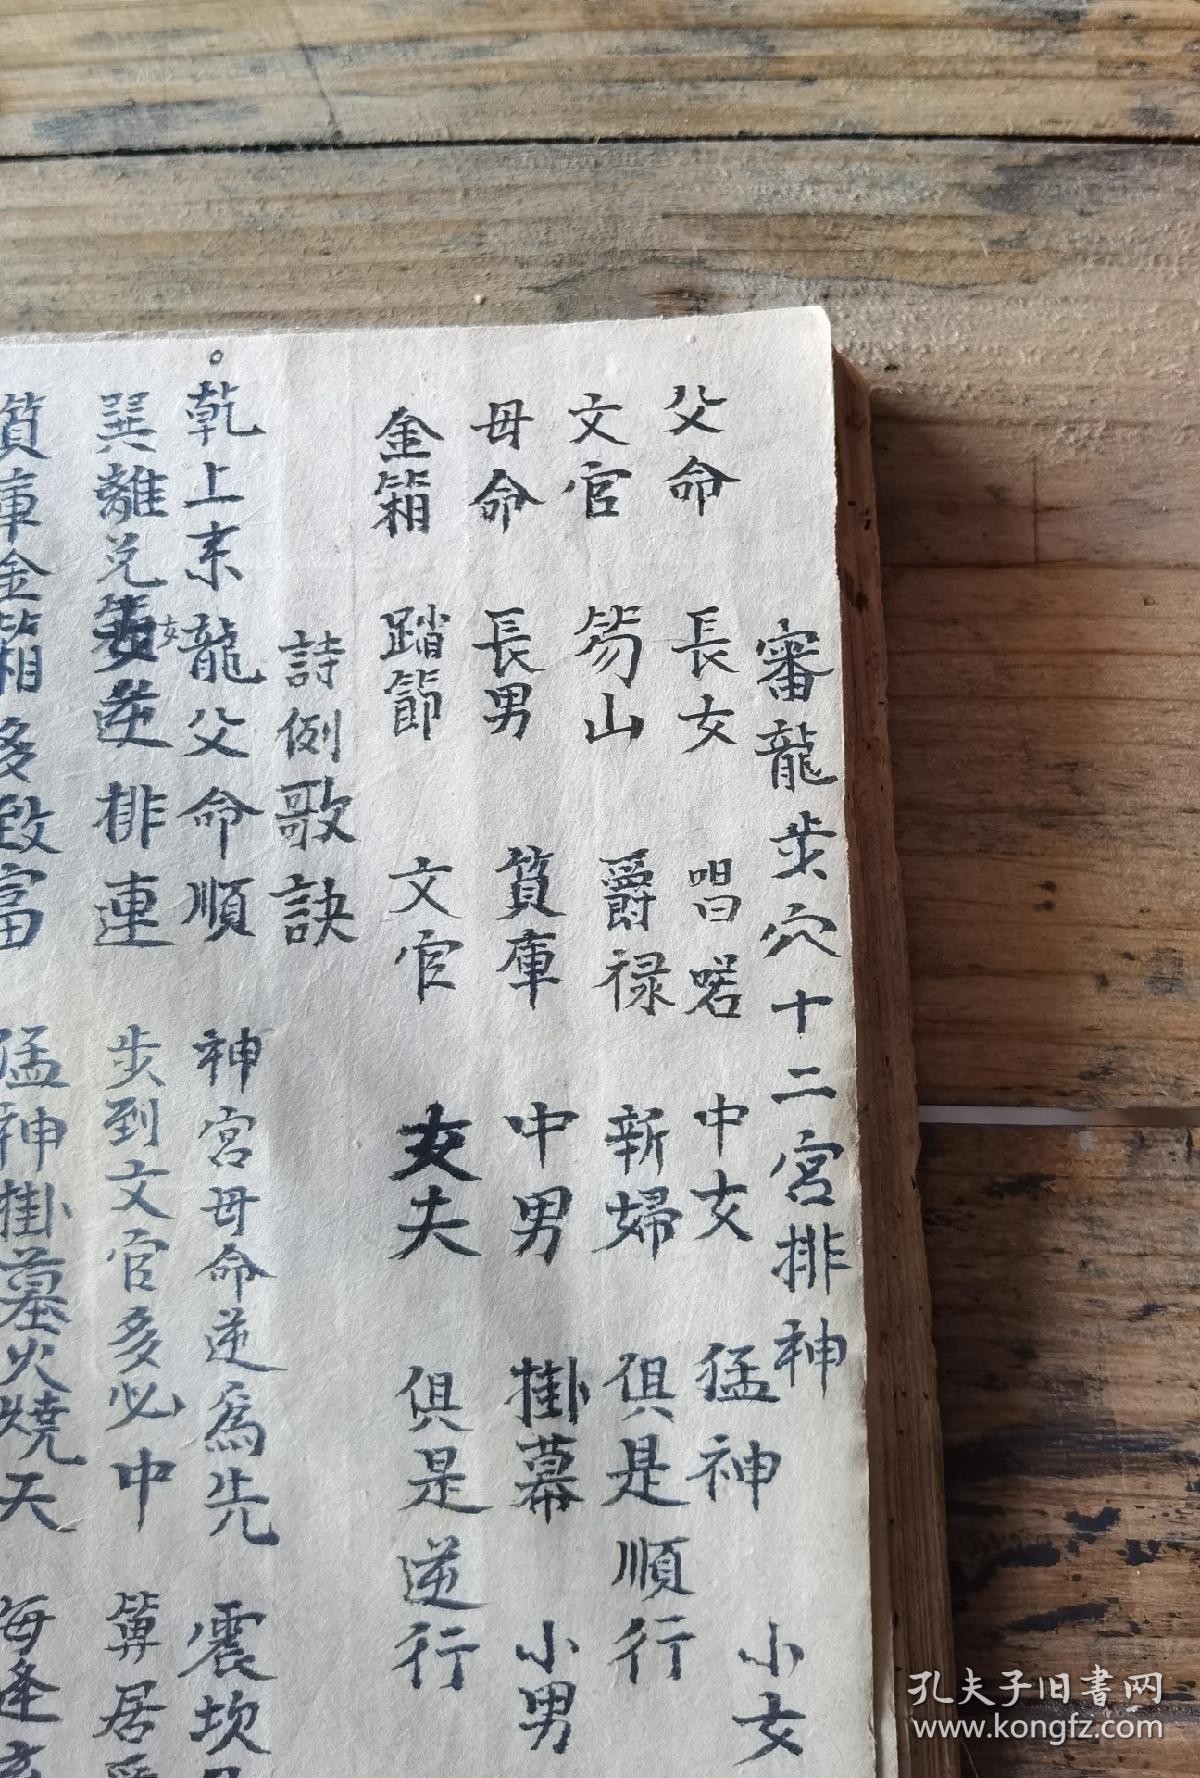 審龍步穴十二宮排神
父命 長女 唱喏 中女 猛神 小女
文官 笏山 爵禄 新婦 俱是順行
母命 長男 質庫 中男 掛幕 小男
金箱 踏節 文官 女夫 俱是逆行
詩例歌訣
乾上来龍父命順 神宮母命逆為先 震坎
巽離兌 逆排連 步到文官多必中 筭居
質庫金箱多致富 猛神掛墓火燒天 每逢
孔夫子旧書网
www.kongfz.com